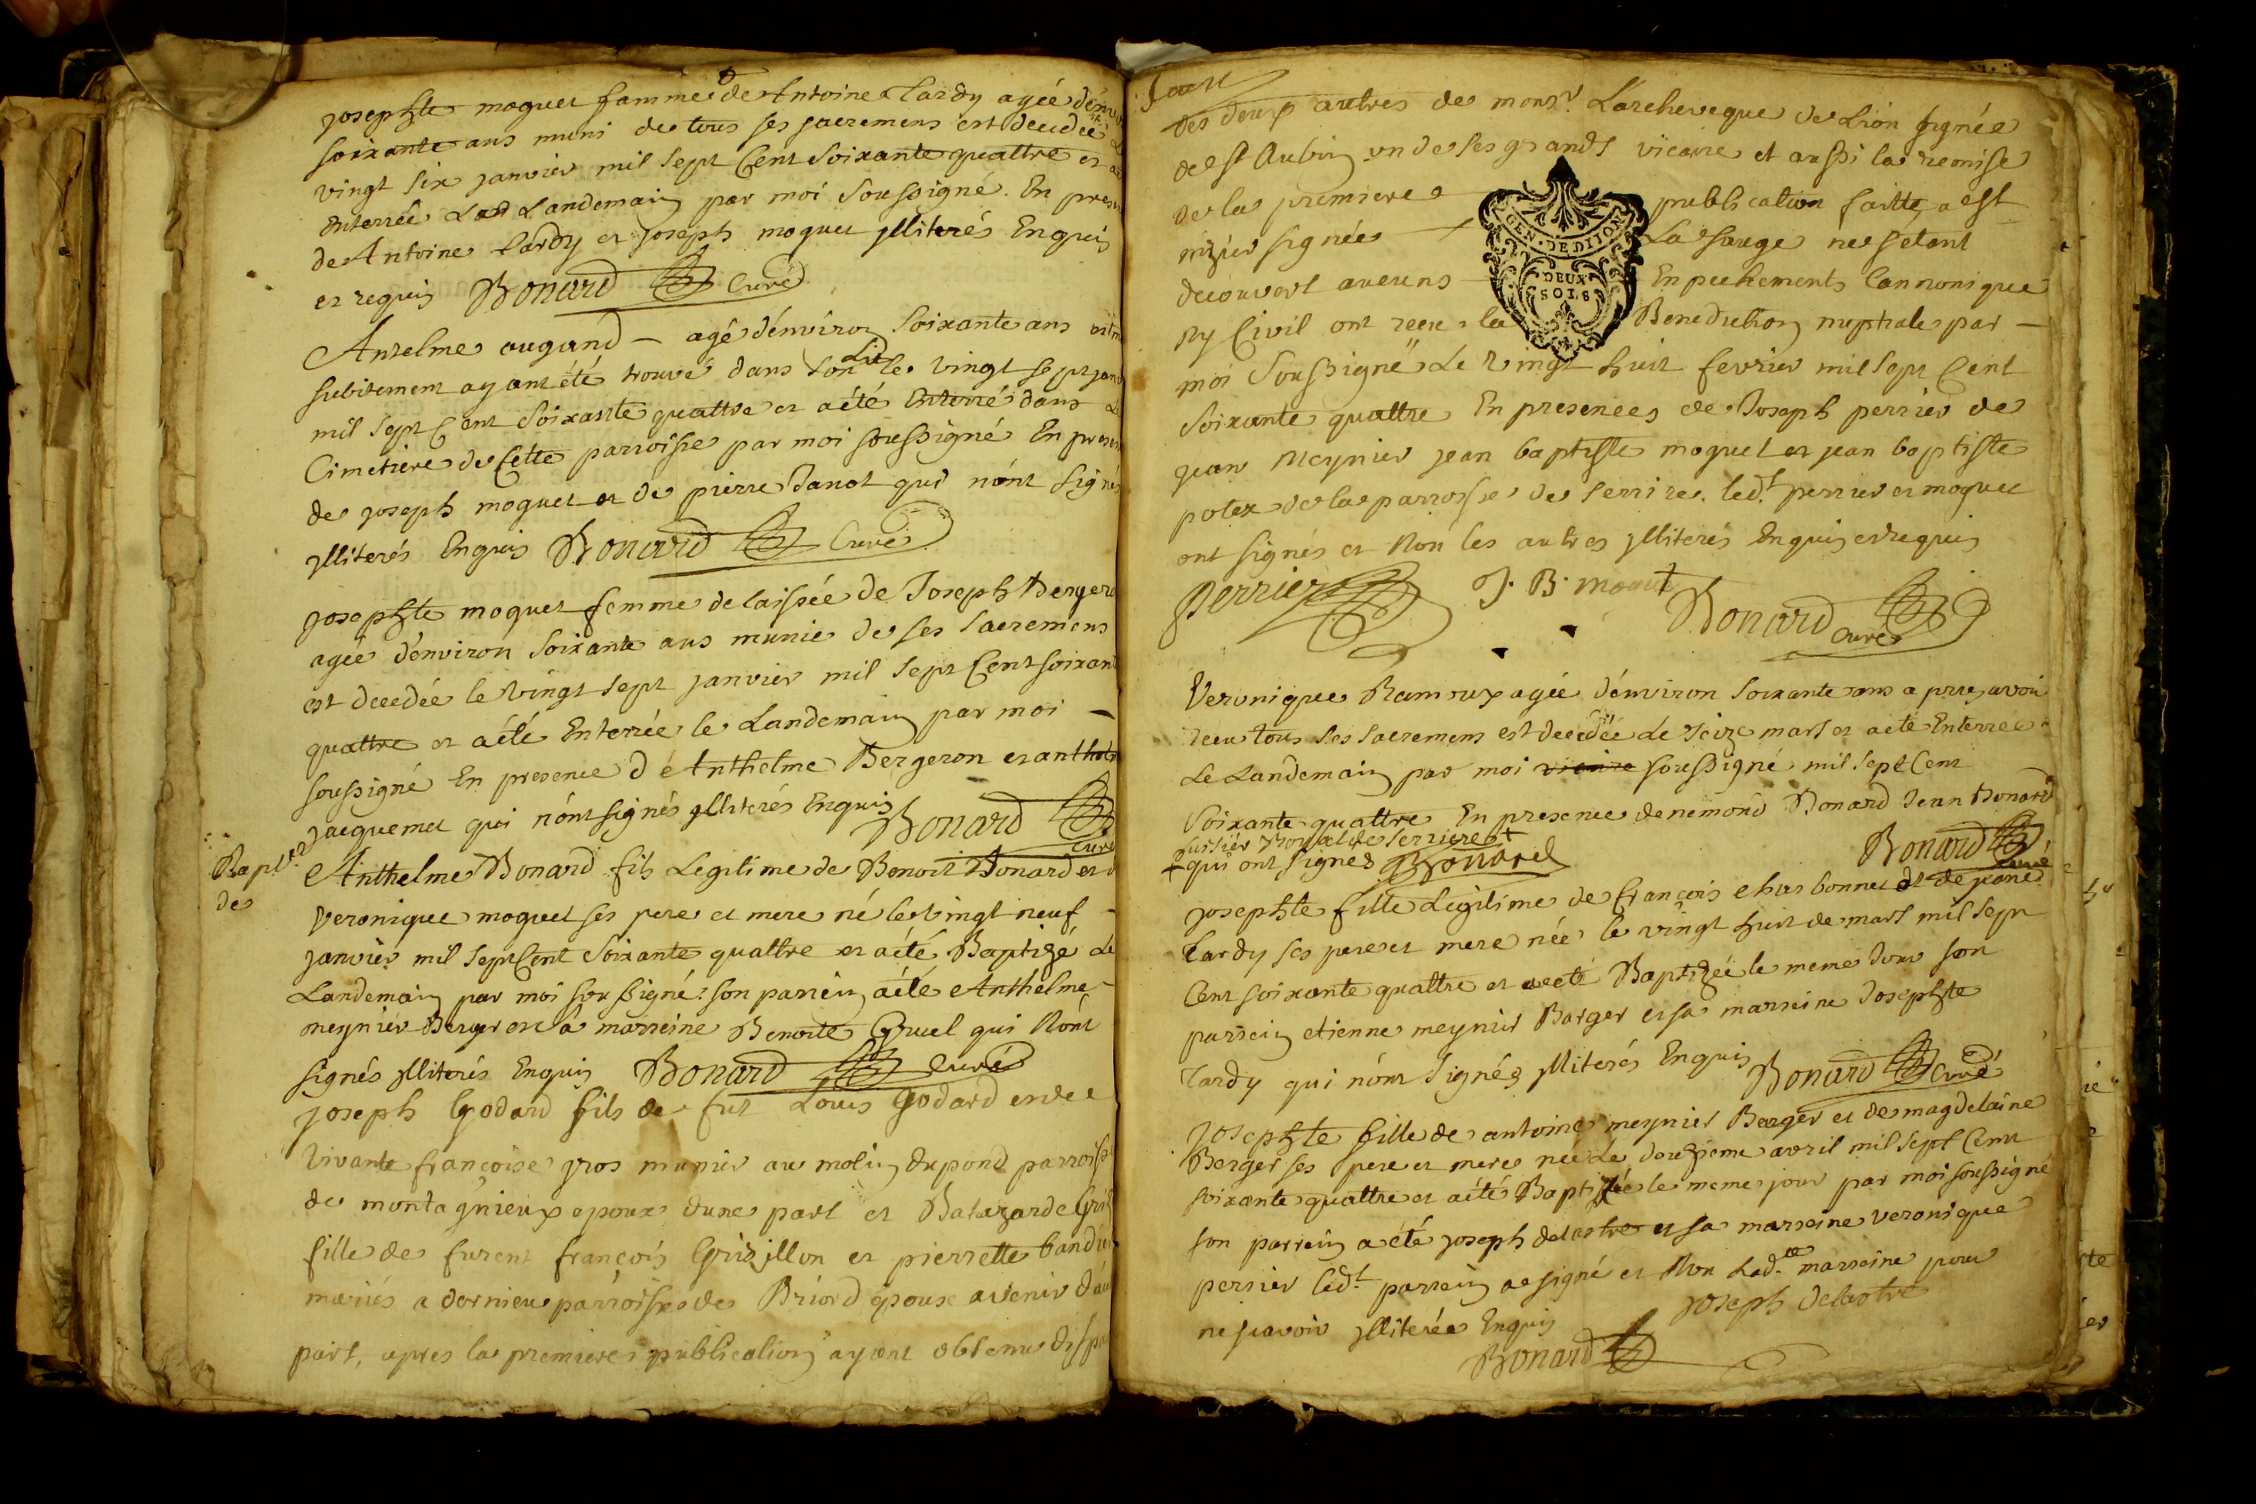 josephte moquet famme de Antoine tardy agée dénvi
soixante ans muni de tous ses sacremens est decedée
vingt six janvier mil sept Cent soixante quattre et a
Enterrée Landemain par moi soussigné. En presen
de Antoine tardy et joseph moquet jlliterés Enquis
et requis Bonard Curé
Anselme augand agé dénviron soixante ans
subitement ayant été trouvé dans son Lit le vingt sept janv
mil sept Cent soixante quattre et aété Enterré dans
Cimetiere de Cette parroisse par moi soussigné En presen
de joseph moquet et de pierre Janot qui nónt signés
jlliterés Enquis Bonard Curé
josephte moquet femme delaissée de Joseph Bergero
agée dénviron soixante ans munie de ses sacremens
est decedée le vingt sept janvier mil sept Cent soixan
quattre et aété Enterrée le Landemain par moi
soussigné En presence dé Anthelme Bergeron et anthel
jacquemet qui nónt signés jlliterés Enquis Bonard Curé
Bapt
des
Anthelme Bonard fils Legitime de Benoit Bonard et
veronique moquet ses pere et mere né le vingt neuf
janvier mil sept Cent soixante quattre et aété Baptizé Le
Landemain par moi soussigné: son parrein aété Anthelme
meynier Berger et â marreine Benoite Gruel qui Nónt
signés jlliterés Enquis Bonard Curé
joseph Godard fils de fut Louis Godard et de
vivante françoise gros munier au molin du pond parroisse
de montagnieux epoux dune part et Batazarde Gris
fille de furent françois Grisillon et pierrette
mariés a dornieu parroisse de Briord epouse avenir dáu
part, apres la premiere publication ayant obtenu disp
des deux autres de monsr. Larcheveque de Lion signée
de St Aubin un de ses grands vicaire et aussi la remise
de la premiere publication faitte a est
nizier signée La sauge ne setant
decouvert aucuns Enpechements Cannonique
Ny Civil ont receu la Benediction nuptiale par
GEN. DE DIJON
DEUX
SOLS
moi soussigné Le vingt huit fevrier mil sept Cent
soixante quattre En presences de Joseph perrier de
jean Meynier jean baptiste moquet et jean baptiste
potex de la parroisse de serriere. ledt. perrier et moquet
ont signés et Non les autres jlliterés Enquis et requis
perrier J. B. moquet Bonard Curé
Veronique Ramoux agée dénviron soixante ans apres avoir
receu tous ses sacremens est decedée Le seize mars et aeté Enterrée
Le Landemain par moi soussigné mil sept Cent
soixante quattre En presence de nemond Bonard Jean Bonard
Royal de serriere
qui ont signes Bonard Bonard curé
josephte fille Legitime de françois charbonnet et de
tardy ses pere et mere née le vingt huit de mars mil sept
Cent soixante quattre et aeté Baptizée le meme Jour son
parrein etienne meynier Barger et sa marreine Josephte
tardy qui nónt signés jlliterés Enquis Bonard Curé
josephte fille de antoine meynier Barger et de magdelaine
Berger ses pere et mere née Le douzieme avril mil sept Cent
soixante quattre et aété Baptizée le meme jour par moi soussigné
son parrein a été joseph delastre et sa marreine veronique
perrier ledt. parrein a signé et Non Lade. marreine pour
ne scavoir jlliterée Enquis joseph delastre
Bonard